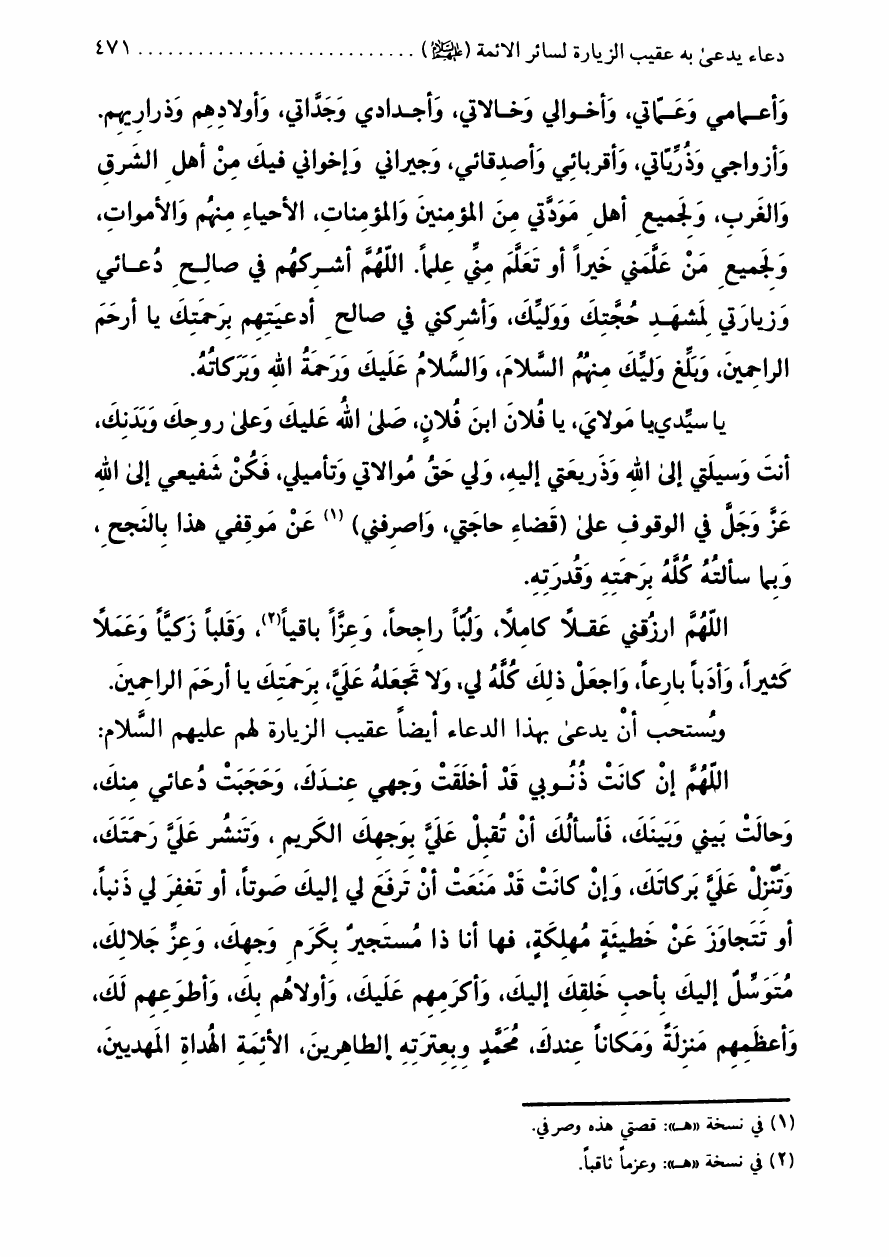 دعاء يدعىٰ به عقيب الزيارة لسائر الائمة (عليهم السلام) ............................ ٤٧١
وَأعـمامي وَعَـمّاتي، وَأخـوالي وَخـالاتي، وَأجـدادي وَجَدَّاتي، وَأولادِهِم وَذراريهِم.
وَأزواجي وَذُرِّيّاتي، وَأقربائي وَأصدِقائي، وَجيراني وَإخواني فيكَ مِنْ أهلِ الشَرقِ
وَالغَربِ، وَلجَميعِ أهلِ مَوَدَّتي مِنَ المؤمِنينَ وَالمؤمِناتِ، الأحياءِ مِنهُم وَالأمواتِ،
وَلجَميعِ مَنْ عَلَّمَني خَيراً أو تَعَلَّمَ مِنِّي عِلماً. اللّهُمَّ أشـركهُم في صالِـحِ دُعـائي
وَزيارَتي لمَشهَـدِ حُجَّتِكَ وَوَليِّكَ، وَأشرِكني في صالحِ أدعيَتِهِم بِرَحمَتِكَ يا أرحَمَ
الراحِمينَ، وَبَلِّغ وَليِّكَ مِنهُمُ السَّلامَ، وَالسَّلامُ عَلَيكَ وَرَحمَةُ اللهِ وَبَرَكاتُهُ.
يا سيِّدي يا مَولايَ، يا فُلانَ ابنَ فُلانٍ، صَلىٰ اللهُ عَليكَ وَعَلىٰ روحِكَ وَبَدَنِكَ،
أنتَ وَسيلَتي إلىٰ اللهِ وَذَريعَتي إليهِ، وَلي حَقُ مُوالاتي وَتأميلي، فَكُنْ شَفيعي إلىٰ اللهِ
عَزَّ وَجَلَّ في الوقوفِ علىٰ (قَضاءِ حاجَتي، وَاصرِفني) (١) عَنْ مَوقِفي هذا بِالنَجحِ،
وَبِما سألتُهُ كُلَّهُ بِرَحمَتِهِ وَقُدرَتِهِ.
اللّهُمَّ ارزُقني عَقـلاً كامِلاً، وَلُبّاً راجحاً، وَعِزَّاً باقياً(٢)، وَقَلباً زَكيَّاً وَعَمَلاً
كَثيراً، وَأدَباً بارعاً، وَاجعَلْ ذلِكَ كُلَّهُ لي، وَلا تَجعَلهُ عَلَيَّ، بِرَحمَتِكَ يا أرحَمَ الراحِمينَ.
ويُستحب أنْ يدعىٰ بهذا الدعاء أيضاً عقيب الزيارة لهم عليهم السَّلام:
اللّهُمَّ إنْ كانَتْ ذُنُـوبي قَدْ أخلَقَتْ وَجهي عِنـدَكَ، وَحَجَبَتْ دُعائي مِنكَ،
وَحالَتْ بَيني وَبَينَكَ، فَأسألُكَ أنْ تُقبِلْ عَلَيَّ بِوَجهِكَ الكَريمِ، وَتَنشُر عَلَيَّ رَحمَتَكَ،
وَتُنَّزِلْ عَلَيَّ بَركاتَكَ، وَإنْ كانَتْ قَدْ مَنَعَتْ أنْ تَرفَعَ لي إليكَ صَوتاً، أو تَغفِرَ لي ذَنباً،
أو تَتَجاوَزَ عَنْ خَطيئَةٍ مُهلِكَةٍ، فها أنا ذا مُستَجيرٌ بِكَرَمِ وَجهِكَ، وَعِزِّ جَلالِكَ،
مُتَوَسِّلٌ إليكَ بِأحبِ خَلقِكَ إليكَ، وَأكرَمِهِم عَلَيكَ، وَأولاهُم بِكَ، وَأطوَعِهِم لَكَ،
وَأعظَمِهِم مَنزِلَةً وَمَكاناً عِندكَ، مُحَمَّدٍ وبِعِترَتِهِ الطاهِرينَ، الأئمَةِ الهُداةِ المَهديينَ،
(١) في نسخة «هـ»: قصتي هذه وصرفي.
(٢) في نسخة «هـ»: وعزماً ثاقباً.